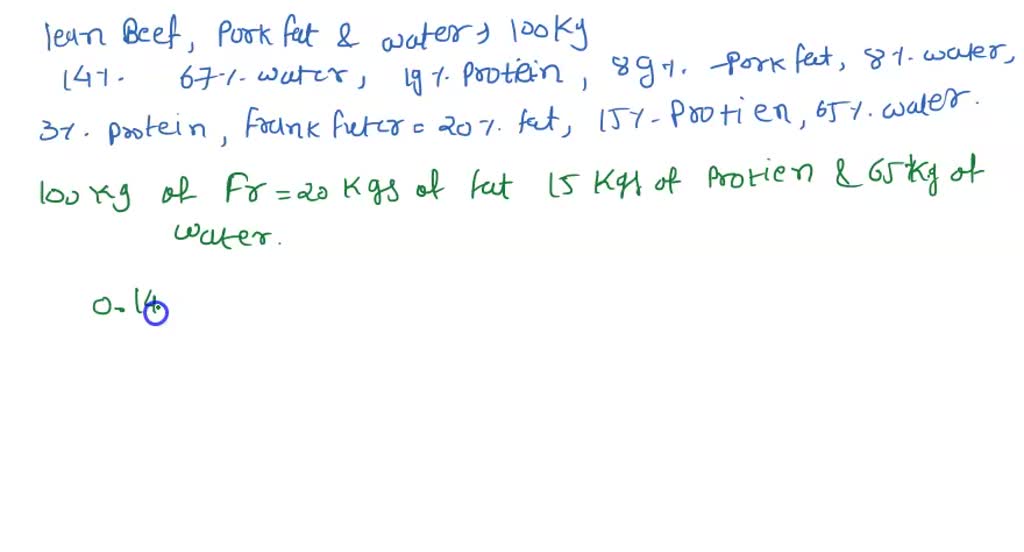 lean Beef, Pork fat & water, 100 Kg
14%. 67%. water, 19%. Protein, 89%. Pork fat, 8%. water,
3%. protein, Frank furter = 20%. fat, 15%. Protien, 65%. water.
100 Kg of Fr = 20 Kgs of fat 15 Kgs of Protien & 65 Kg of
water.
0.14